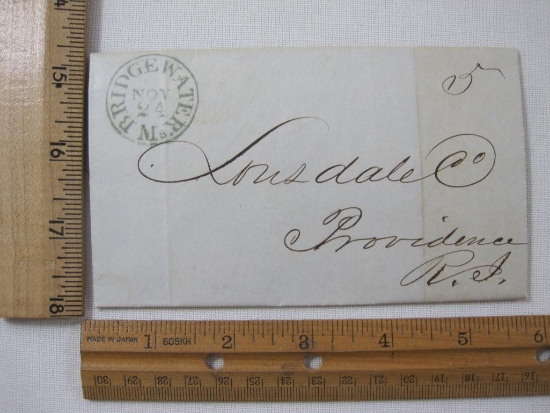 BRIDGEWATER Ms.
NOV
24
5
Lonsdale Co
Providence
R. I.
15
16
17
18
1 2 3 4 5 6
MADE IN JAPAN 605KH
30 29 28 27 26 25 24 23 22 21 20 19 18 17 16